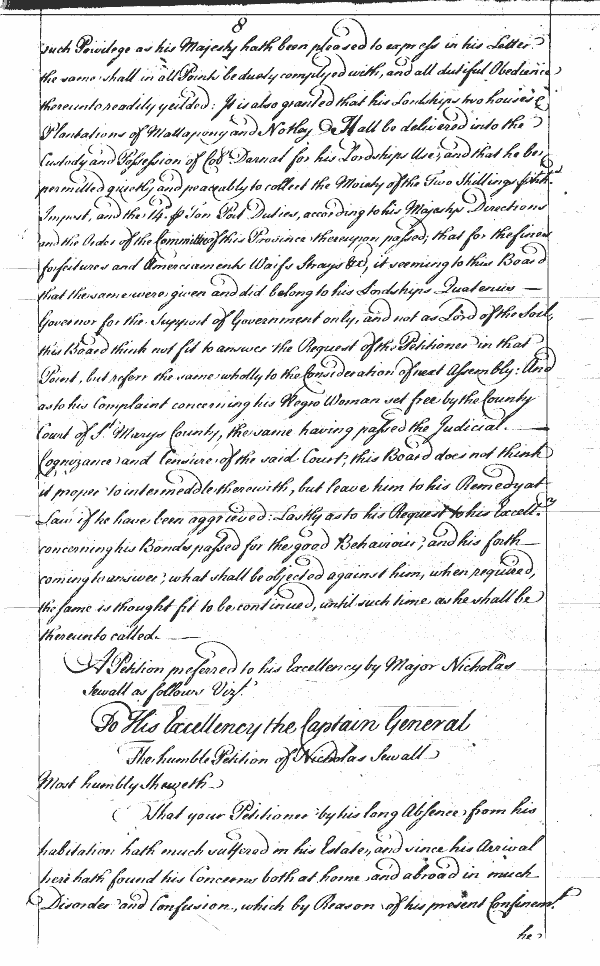 8
such Privilege as his Majesty hath been pleased to express in his Letter
the same shall in all Points be duely complyed with, and all dutiful Obedience
thereunto readily yeilded: It is also granted that his Lordships two houses &
Plantations of Mattapony and Notley Hall be delivered into the
Custody and Possession of Col Darnal for his Lordships Use, and that he be
permitted quickly and peaceably to collect the Moiety of the Two Shillings
Impost, and the 14.d p Ton Port Duties, according to his Majestys Directions
and the Order of the Committee of this Province thereupon passed, that for the fines
forfeitures and Amerciaments Waifs Strays &c, it seeming to this Board
that the same were given and did belong to his Lordships Quatenus —
Governor for the Support of Government only, and not as Lord of the Soil,
this Board think not fit to answer the Request of the Petitioner in that
Point, but referr the same wholly to the Consideration of next Assembly: And
as to his Complaint concerning his Negro Woman set free by the County
Court of St. Marys County, the same having passed the Judicial —
Cognizance and Censure of the said Court, this Board does not think
it proper to intermeddle therewith, but leave him to his Remedy at
Law if he have been aggrieved: Lastly as to his Request to his Excellcy
concerning his Bonds passed for the good Behaviour, and his forth —
coming to answer, what shall be objected against him, when required,
the same is thought fit to be continued, until such time as he shall be
thereunto called. —
A Petition preferred to his Excellency by Major Nicholas
Sewall as follows Vizt.
To His Excellency the Captain General
The humble Petition of Nicholas Sewall
Most humbly Sheweth
That your Petitioner by his long Absence from his
habitation hath much suffered in his Estate, and since his Arrival
here hath found his Concerns both at home and abroad in much
Disorder and Confusion, which by Reason of his present Confinemt.
he